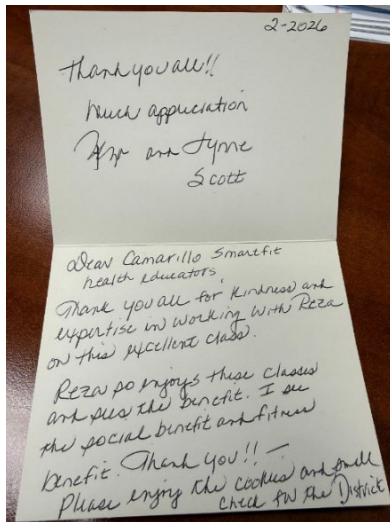 2-2026
Thank you all!!
Much appreciation
and Lynne
Scott
Dear Camarillo Smartfit
health educators
Thank you all for kindness and
expertise in working with Reza
on this excellent class.
Reza so enjoys these classes
and sees the benefit. I see
the social benefit and fitness
benefit. Thank you!! —
Please enjoy the cookies and small
check for the District